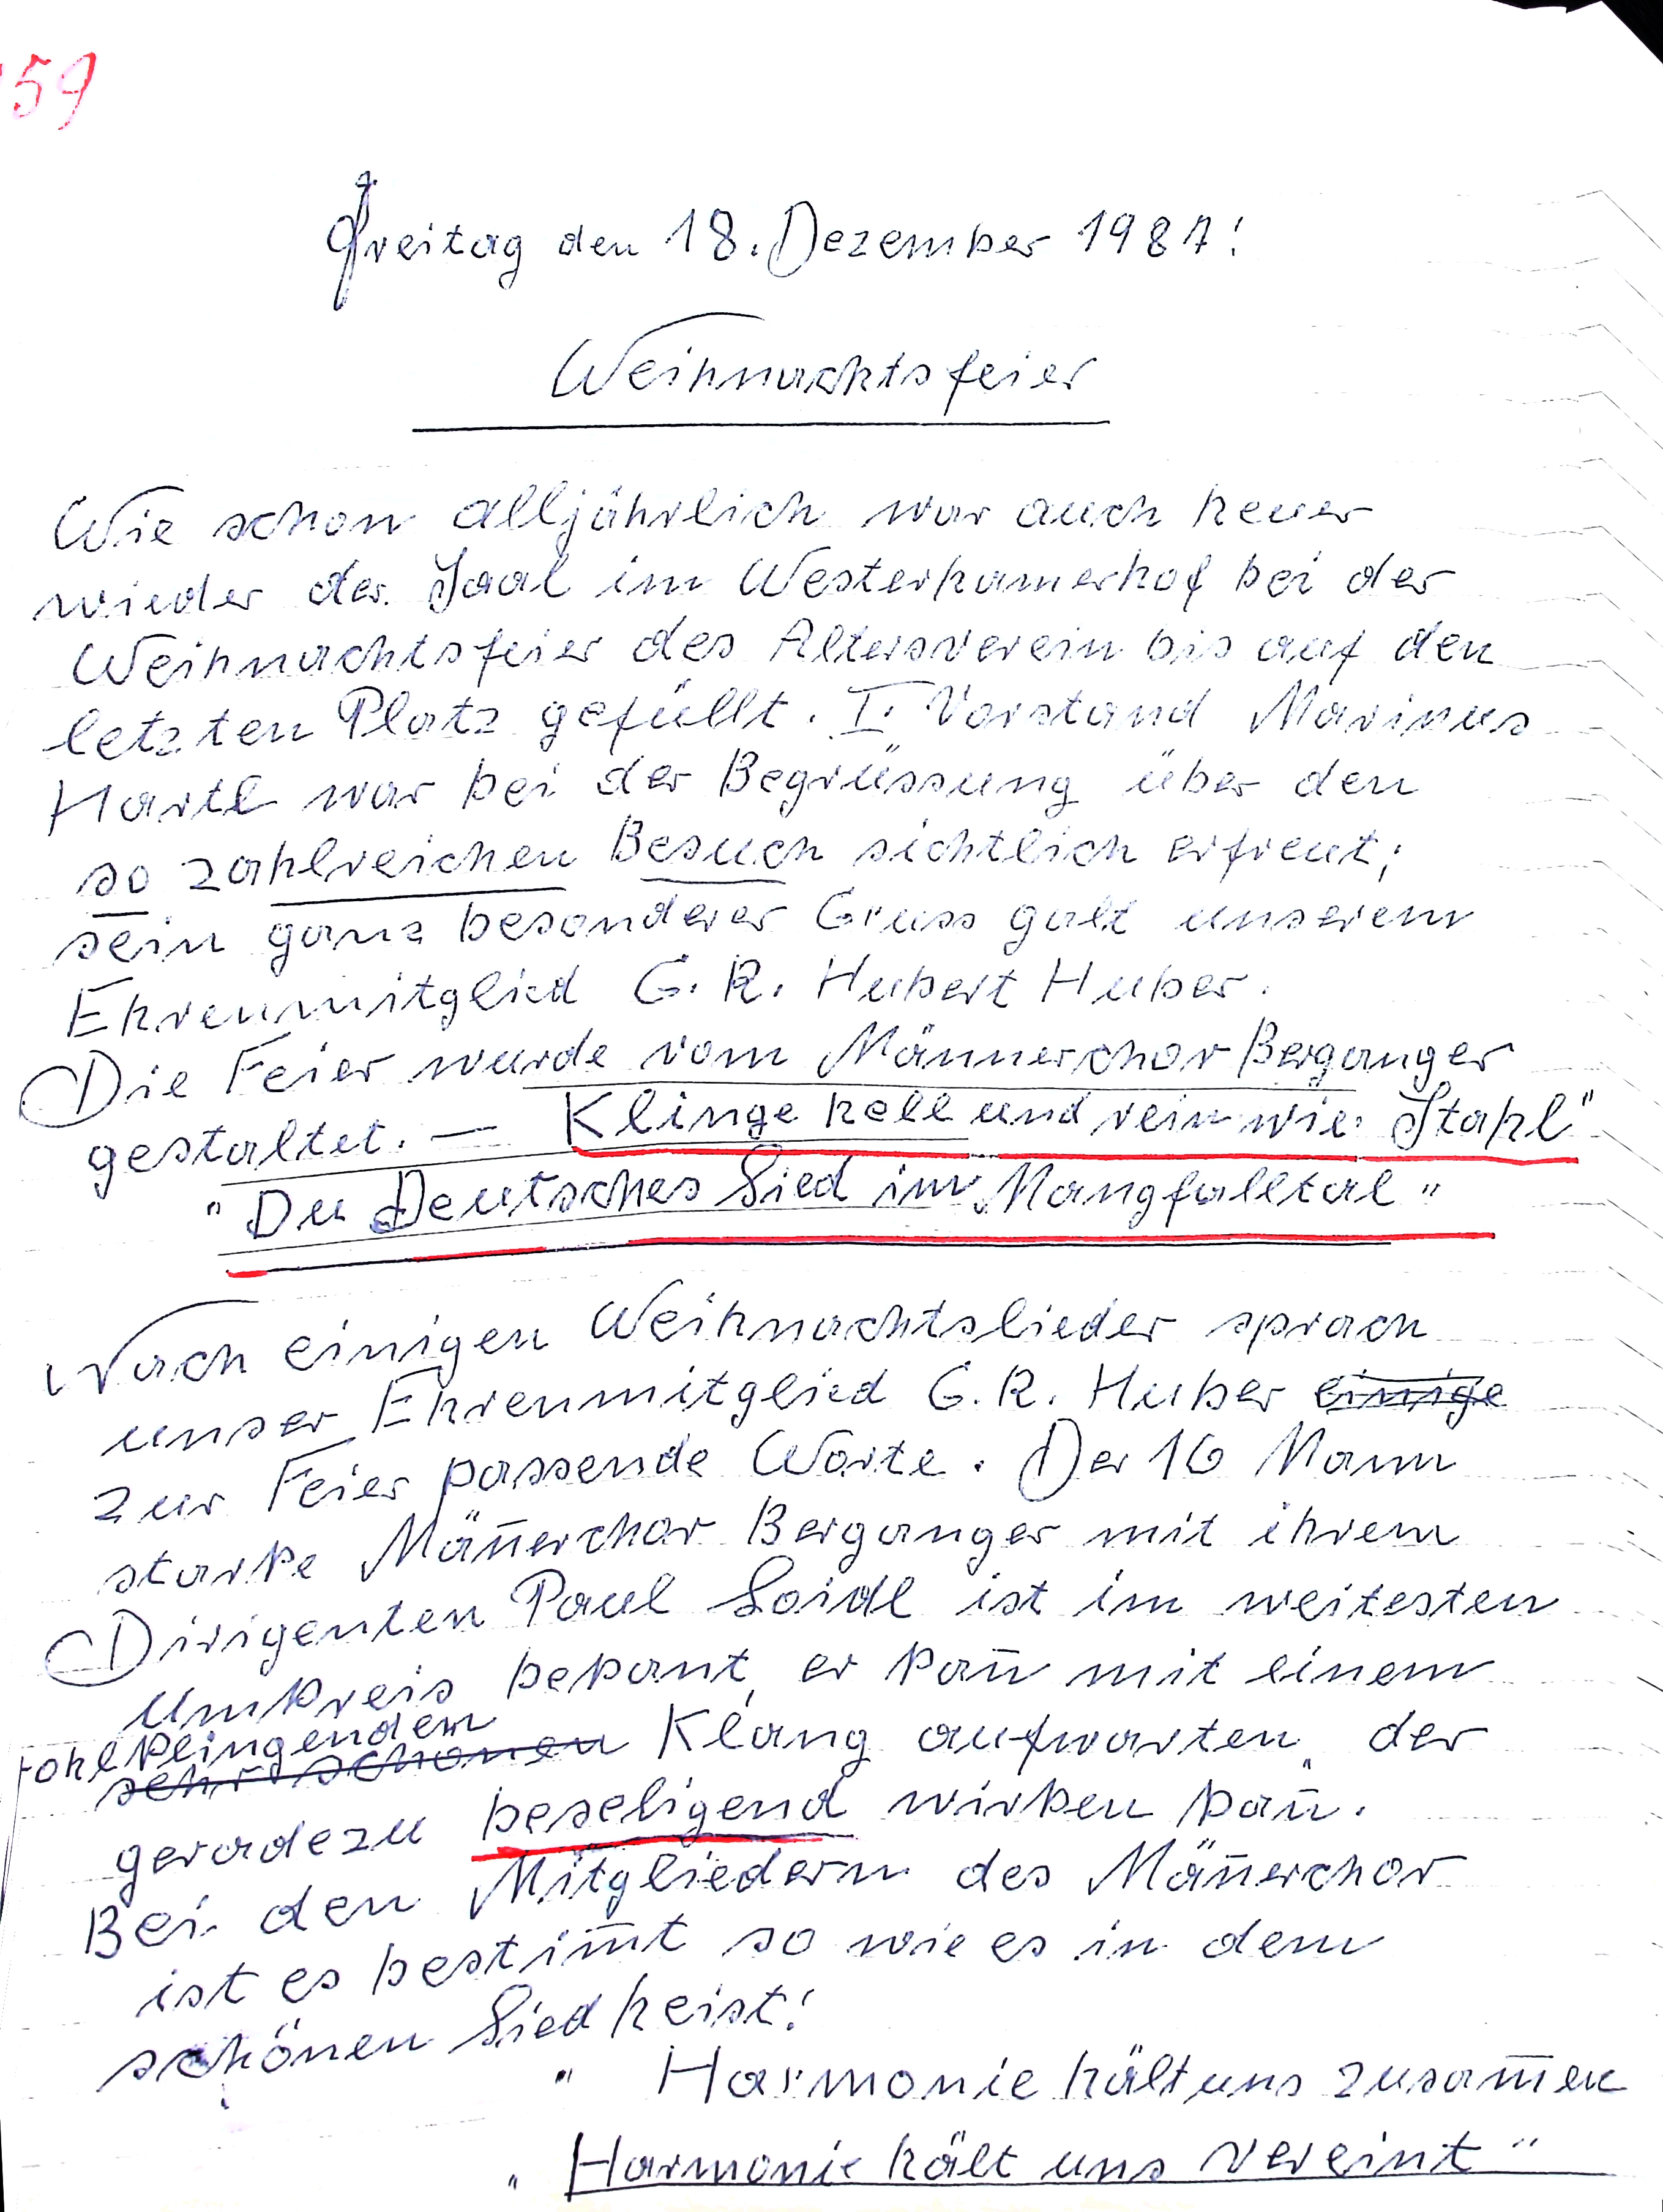 59
Freitag den 18. Dezember 1987!
Weihnachtsfeier
Wie schon alljährlich war auch heuer
wieder der Saal im Westerhamerhof bei der
Weihnachtsfeier des Altersverein bis auf den
letzten Platz gefüllt. I. Vorstand Marinus
Hartl war bei der Begrüssung über den
so zahlreichen Besuch sichtlich erfreut;
sein ganz besonderer Gruss galt unserem
Ehrenmitglied G. R. Hubert Huber.
Die Feier wurde vom Männerchor Berganger
gestaltet. — Klinge hell und rein wie Stahl"
" Du Deutsches Lied im Mangfalltal "
Nach einigen Weihnachtslieder sprach
unser Ehrenmitglied G. R. Huber einige
zur Feier passende Worte. Der 16 Mann
starke Män̅erchor Berganger mit ihrem
Dirigenten Paul Loidl ist im weitesten
Umkreis bekant, er kan̅ mit einem
wohlklingenden
sehr schönen Klang aufwarten, der
geradezu beseligend wirken kan̅.
Bei den Mitgliedern des Män̅erchor
ist es bestim̅t so wie es in dem
schönen Lied heist!
" Harmonie hält uns zusam̅en
" Harmonie hält uns vereint "